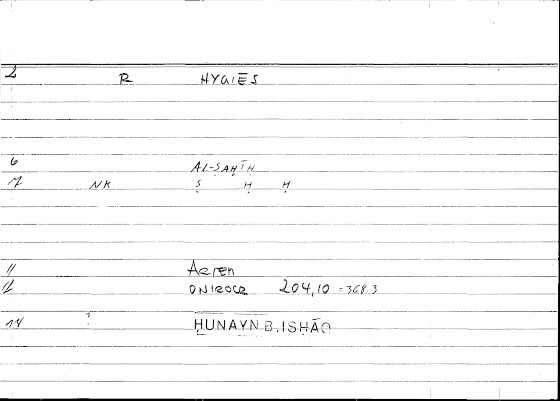 2 R HYGIĒS
6 AL-ṢAḤĪḤ
7 NK Ṣ Ḥ Ḥ
11 ARTEM
12 ONIROCR 204,10 = 368.3
14 ? ḤUNAYN B. ISḤĀQ